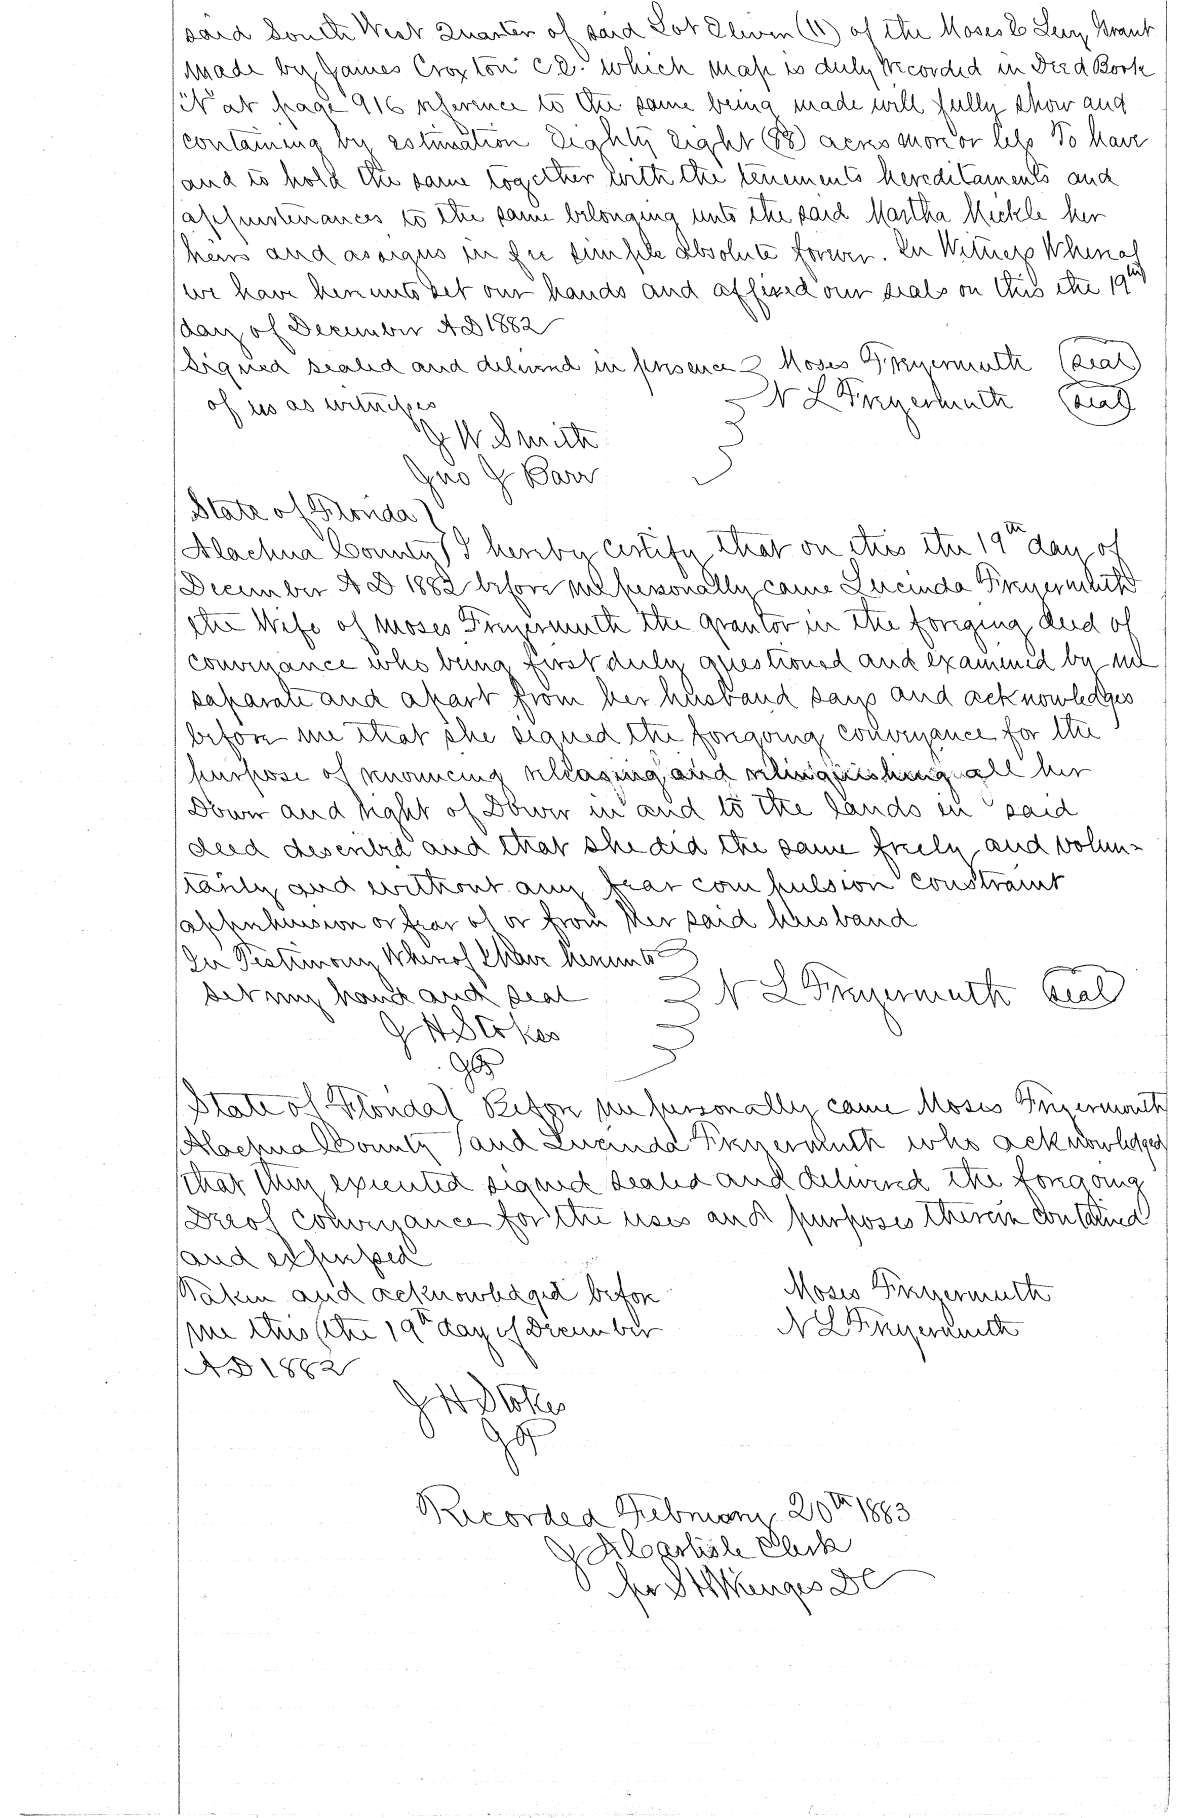 said South West Quarter of said Lot Eleven (11) of the Moses E Levy Grant
made by James Croxton C.E. which map is duly recorded in Deed Book
"N" at page 916 reference to the same being made will fully show and
containing by estimation Eighty Eight (88) acres more or less To have
and to hold the same together with the tenements hereditaments and
appurtenances to the same belonging unto the said Martha Mickle her
heirs and assigns in fee simple absolute forever. In Witness Whereof
we have hereunto set our hands and affixed our seals on this the 19th
day of December A D 1882
Signed sealed and delivered in presence Moses Freyermuth seal
of us as witnesses N L Freyermuth seal
J W Smith
Jno J Barr
State of Florida
Alachua County I hereby certify that on this the 19th day of
December A D 1882 before me personally came Lucinda Freyermuth
the Wife of Moses Freyermuth the grantor in the foreging deed of
conveyance who being first duly questioned and examined by me
saparate and apart from her husband says and acknowledges
before me that she signed the foregoing conveyance for the
purpose of renouncing releasing and relinquishing all her
Dower and right of Dower in and to the lands in said
deed described and that she did the same freely and volun=
tarily and without any fear compulsion constraint
apprehension or fear of or from her said husband
In Testimony Whereof I have hereunto
set my hand and seal N L Freyermuth seal
J H Stokes
JP
State of Florida Before me personally came Moses Freyermouth
Alachua County and Lucinda Freyermuth who acknowledged
that they executed signed sealed and delivered the foregoing
Dee of conveyance for the uses and purposes therein contained
and expressed
Taken and acknowledged before Moses Freyermuth
me this the 19th day of December N L Freyermuth
A D 1882
J H Stokes
JP
Recorded February 20th 1883
J A Carlisle Clerk
per S H Wienges DC